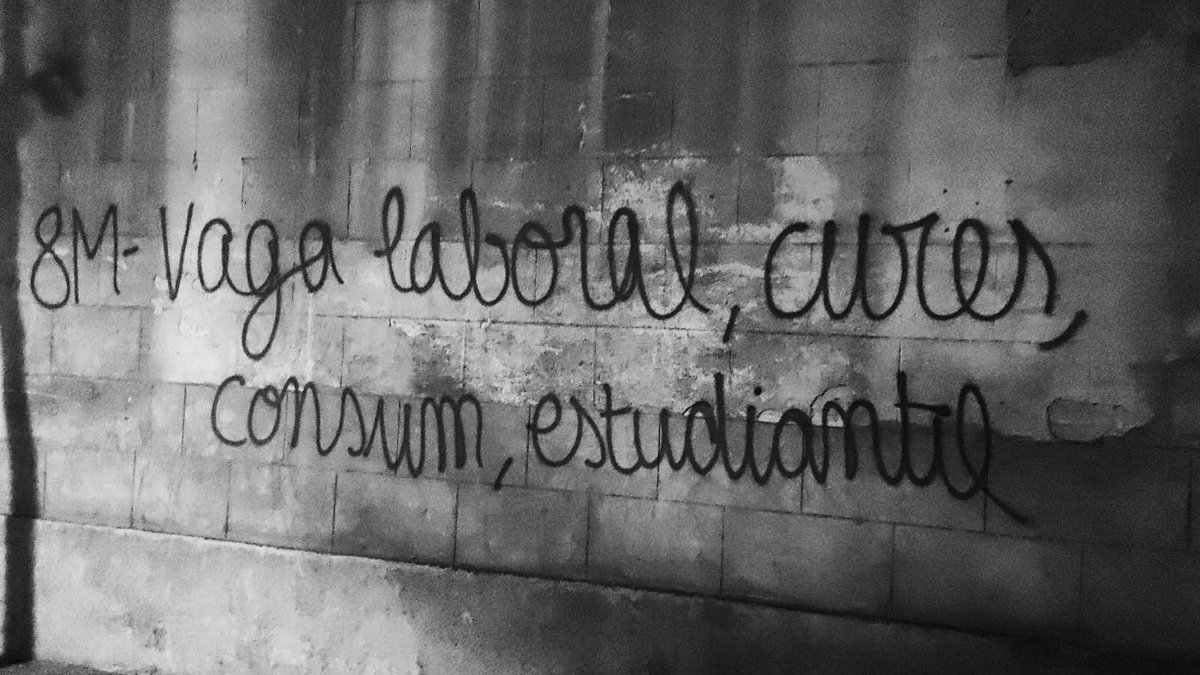 8M- Vaga laboral, cures,
consum, estudiantil